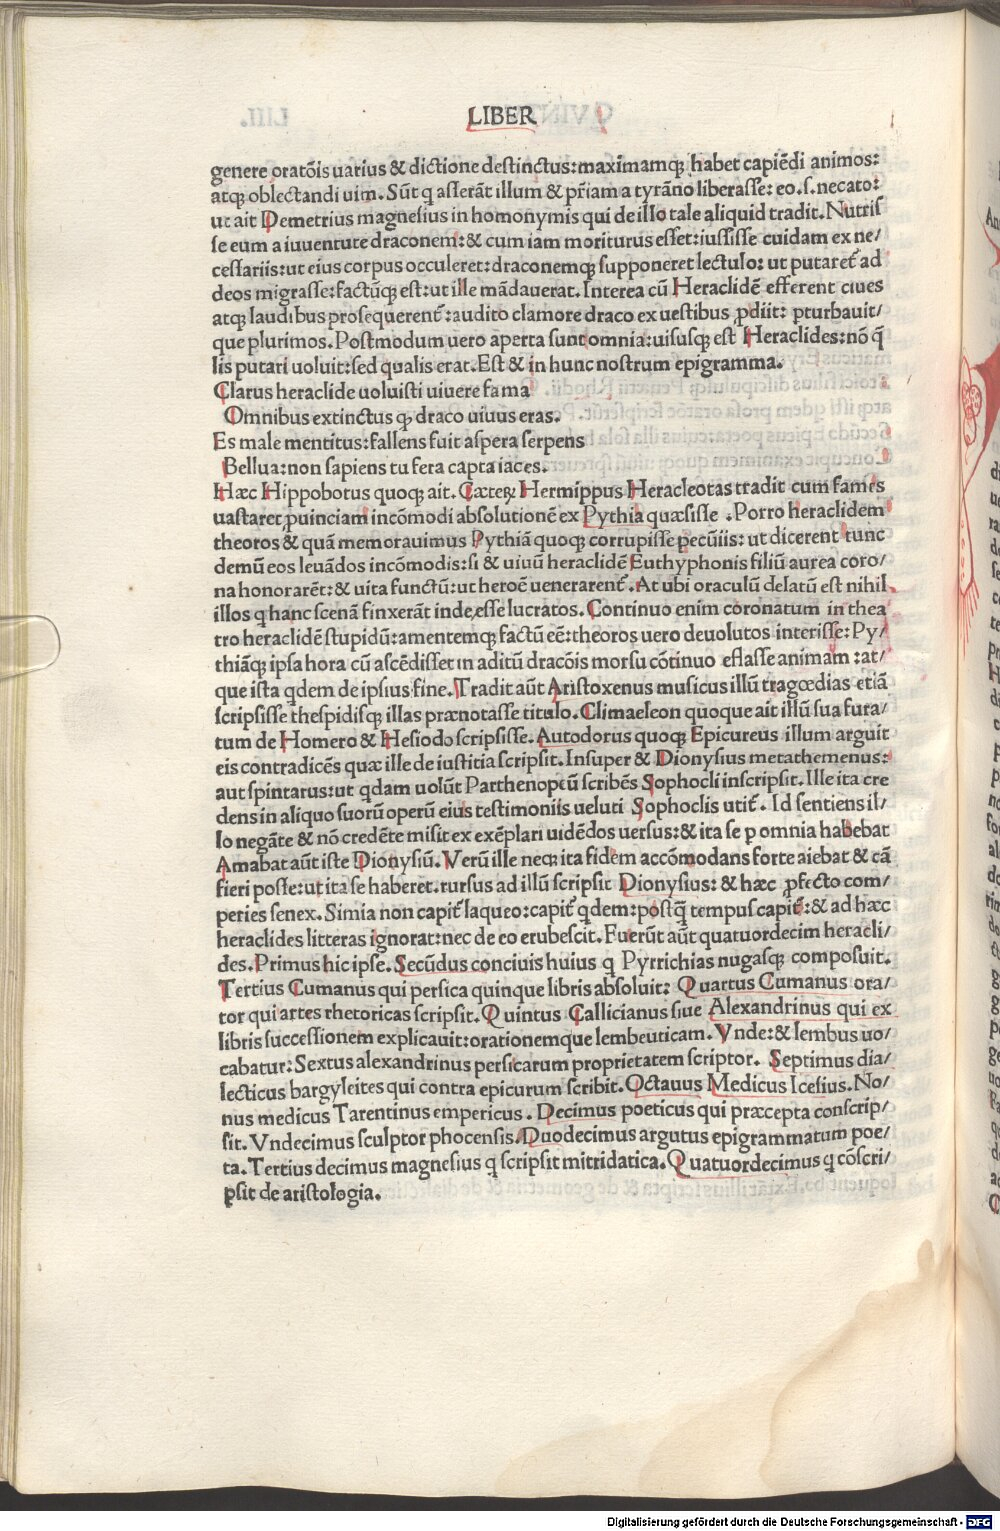 LIBER
genere oratōis uarius & dictione destinctus:maximamq; habet capiēdi animos:
atq; oblectandi uim. Sūt q asserāt illum & pr̄iam a tyrāno liberasse: eo.s.necato:
ut ait Demetrius magnesius in homonymis qui de illo tale aliquid tradit. Nutris
se eum a iuuentute draconem:& cum iam moriturus esset:iussisse cuidam ex ne/
cessariis:ut eius corpus occuleret:draconemq; supponeret lectulo: ut putaret̄ ad
deos migrasse:factūq; est:ut ille mādauerat. Interea cū Heraclidē efferent ciues
atq; laudibus prosequerent̄:audito clamore draco ex uestibus ꝓdiit: pturbauit/
que plurimos. Postmodum uero aperta sunt omnia:uisusq; est Heraclides:nō q̄
lis putari uoluit:sed qualis erat. Est & in hunc nostrum epigramma.
Clarus heraclide uoluisti uiuere fama
Omnibus extinctus q; draco uiuus eras.
Es male mentitus:fallens fuit aspera serpens
Bellua:non sapiens tu fera capta iaces.
Hæc Hippobotus quoq; ait. Cæteꝝ Hermippus Heracleotas tradit cum fames
uastaret ꝓuinciam incōmodi absolutionē ex Pythia quæsisse . Porro heraclidem
theoros & quā memorauimus Pythiā quoq; corrupisse pecūiis: ut dicerent tunc
demū eos leuādos incōmodis:si & uiuū heraclidē Euthyphonis filiū aurea coro/
na honorarēt:& uita functū:ut heroē uenerarent̄. At ubi oraculū delatū est nihil
illos q hanc scenā finxerāt inde esse lucratos. Continuo enim coronatum in thea
tro heraclidē stupidū:amentemq; factū eē:theoros uero deuolutos interisse: Py/
thiāq; ipsa hora cū ascēdisset in aditū dracōis morsu cōtinuo efflasse animam :at/
que ista qdem de ipsius fine. Tradit aūt Aristoxenus musicus illū tragœdias etiā
scripsisse thespidisq; illas prænotasse titulo. Climaeleon quoque ait illū sua fura/
tum de Homero & Hesiodo scripsisse. Autodorus quoq; Epicureus illum arguit
eis contradicēs quæ ille de iustitia scripsit. Insuper & Dionysius metathemenus:
aut spintarus:ut qdam uolūt Parthenopeū scribēs Sophocli inscripsit. Ille ita cre
dens in aliquo suorū operū eius testimoniis ueluti Sophoclis utit̄. Id sentiens il/
lo negāte & nō credēte misit ex exēplari uidēdos uersus:& ita se p omnia habebat
Amabat aūt iste Dionysiū. Verū ille neq; ita fidem accōmodans forte aiebat & cā
fieri posse:ut ita se haberet. rursus ad illū scripsit Dionysius: & hæc ꝓfecto com/
peries senex. Simia non capit̄ laqueo:capit̄ qdem:postq̄ tempus capit̄:& ad hæc
heraclides litteras ignorat:nec de eo erubescit. Fuerūt aūt quatuordecim heracli/
des. Primus hic ipse. Secūdus conciuis huius q Pyrrichias nugasq; composuit.
Tertius Cumanus qui persica quinque libris absoluit: Quartus Cumanus ora/
tor qui artes rhetoricas scripsit. Quintus Callicianus siue Alexandrinus qui ex
libris successionem explicauit:orationemque lembeuticam. Vnde:& lembus uo/
cabatur: Sextus alexandrinus persicarum proprietatem scriptor. Septimus dia/
lecticus bargyleites qui contra epicurum scribit. Octauus Medicus Icesius. No/
nus medicus Tarentinus empericus . Decimus poeticus qui præcepta conscrip/
sit. Vndecimus sculptor phocensis. Duodecimus argutus epigrammatum poe/
ta. Tertius decimus magnesius q scripsit mitridatica. Quatuordecimus q cōscri/
psit de aristologia.
Digitalisierung gefördert durch die Deutsche Forschungsgemeinschaft - DFG